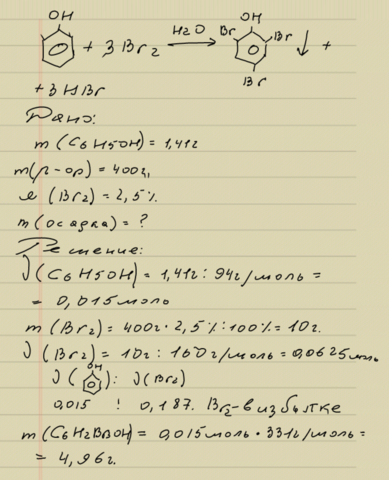 OH OH
+ 3Br2 H2O Br Br ↓ +
Br
+3HBr
Дано:
m(C6H5OH)=1,41г
m(р-ор)=400г,
(Br2)=2,5%
m(осадка)=?
Решение:
ν(C6H5OH)=1,41г:94г/моль=
=0,015моль
m(Br2)=400г·2,5%:100%=10г.
ν(Br2)=10г:160г/моль=0,0625моль
OH
ν( ):ν(Br2)
0,015 : 0,187. Br2-в избытке
m(C6H2Br3OH)=0,015моль·331г/моль=
=4,96г.